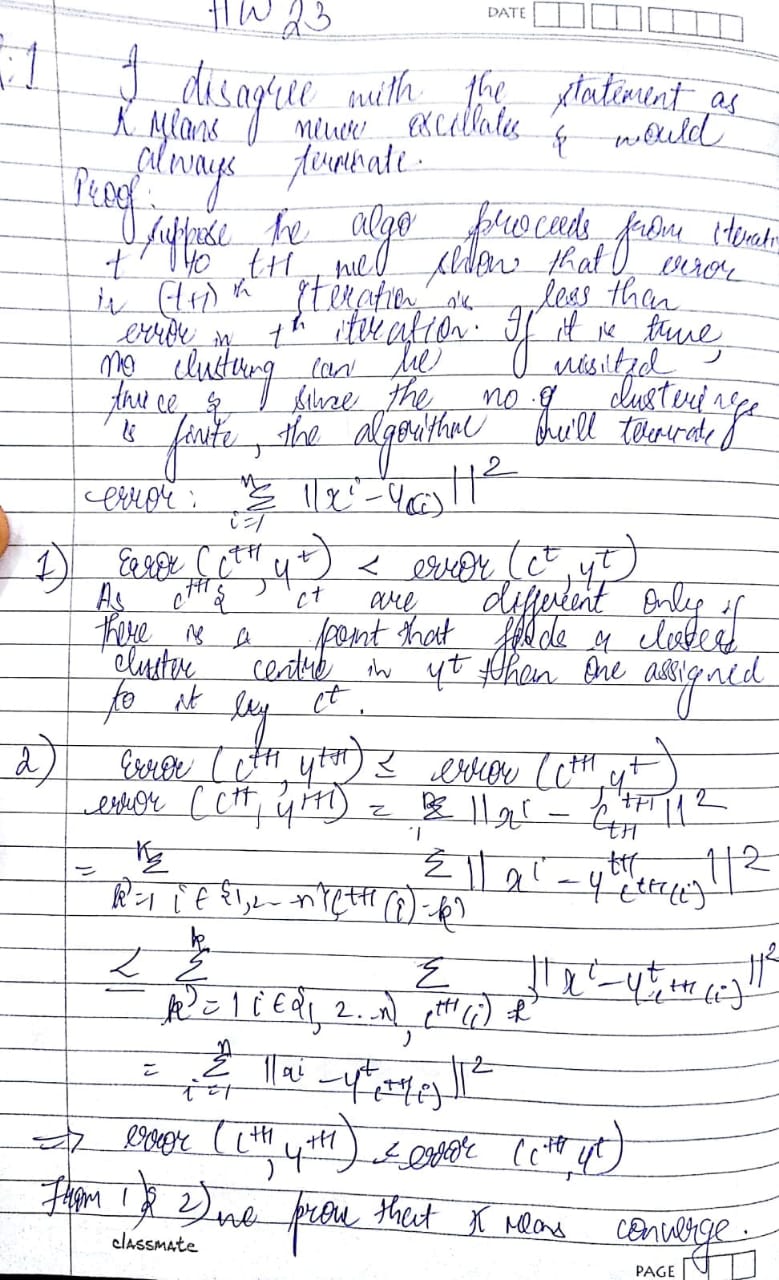 HW 23
DATE
:1 I disagree with the statement as
K Means never oscillates & would
always terminate.
Proof:
Suppose the algo proceeds from iterati
t to t+1, we show that error
in (t+1)th iteration is less than
error in tth iteration. If it is true,
no clustering can be visited
twice & since the no. of clusterings
is finite, the algorithm will terminate
error: n∑i=1 ||x^i - y_c(i)||^2
1) Error (c^t+1, y^t) < error (c^t, y^t)
As c^t+1 & c^t are different only if
there is a point that finds a closer
cluster centre in y^t than one assigned
to it by c^t.
2) Error (c^t+1, y^t+1) ≤ error (c^t+1, y^t)
error (c^t+1, y^t+1) = ∑ ||x^i - ^t+1 ||^2
= K∑k'=1 i∈{1,2 -- n}, c^t+1(i)=k' ∑||x^i - y^t+1_c^t+1(i)||^2
≤ k∑k'=1 i∈{1, 2..n}, c^t+1(i)=k' ∑ ||x^i - y^t_c^t+1(i)||^2
= n∑i=1 ||x^i - y^t_c^t+1(i)||^2
⇒ error (c^t+1, y^t+1) ≤ error (c^t+1, y^t)
From 1) & 2) we prove that K Means converge.
classmate
PAGE